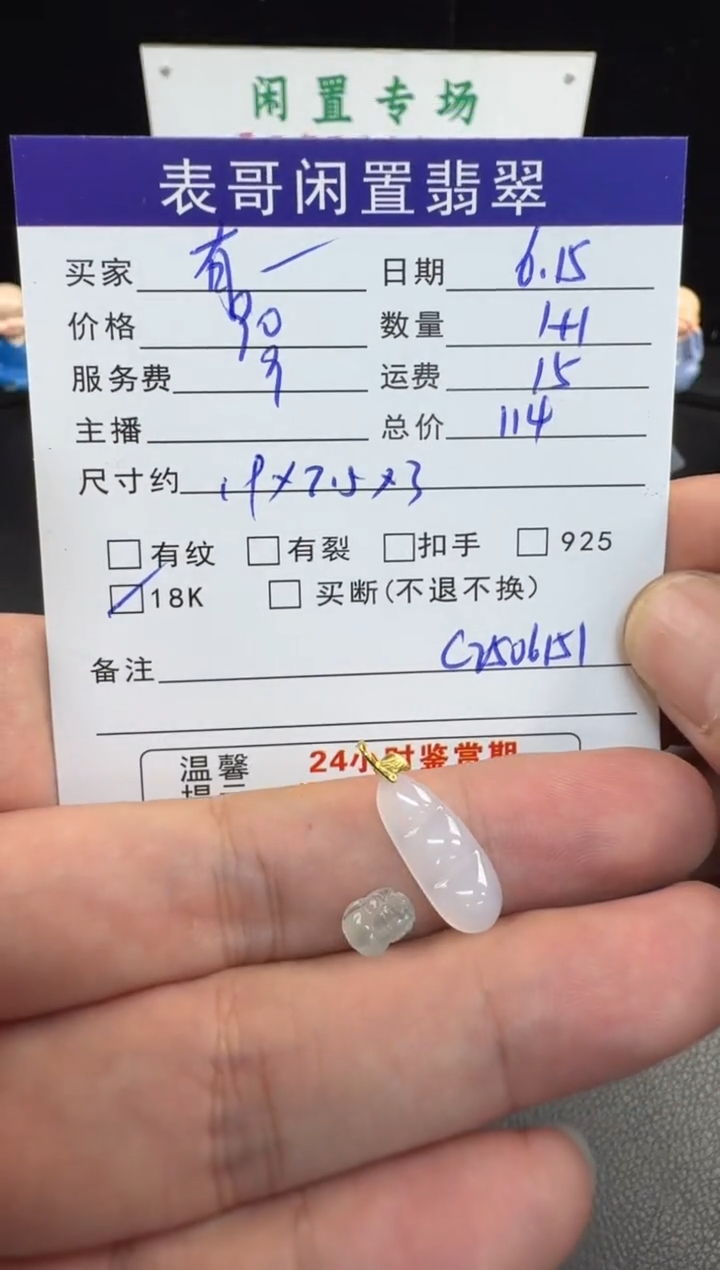 闲置专场
表哥闲置翡翠
买家 有一 日期 6.15
价格 90 数量 1+1
服务费 9 运费 15
主播 总价 114
尺寸约 19×7.5×3
□有纹 □有裂 □扣手 □925
□18K □买断(不退不换)
备注 C2506151
温馨 24小时鉴赏期
提示